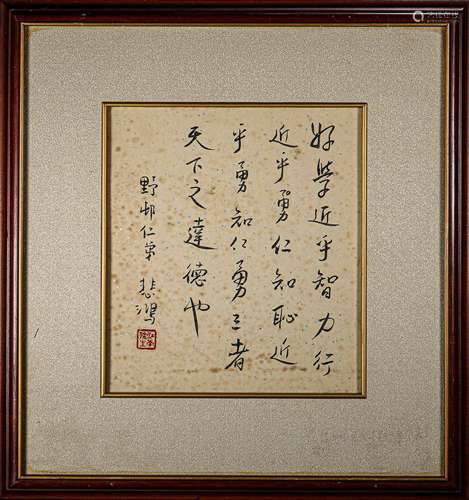 好學近乎智力行
近乎勇仁知恥近
乎勇知仁勇三者
天下之達德也
野邨仁弟 悲鴻